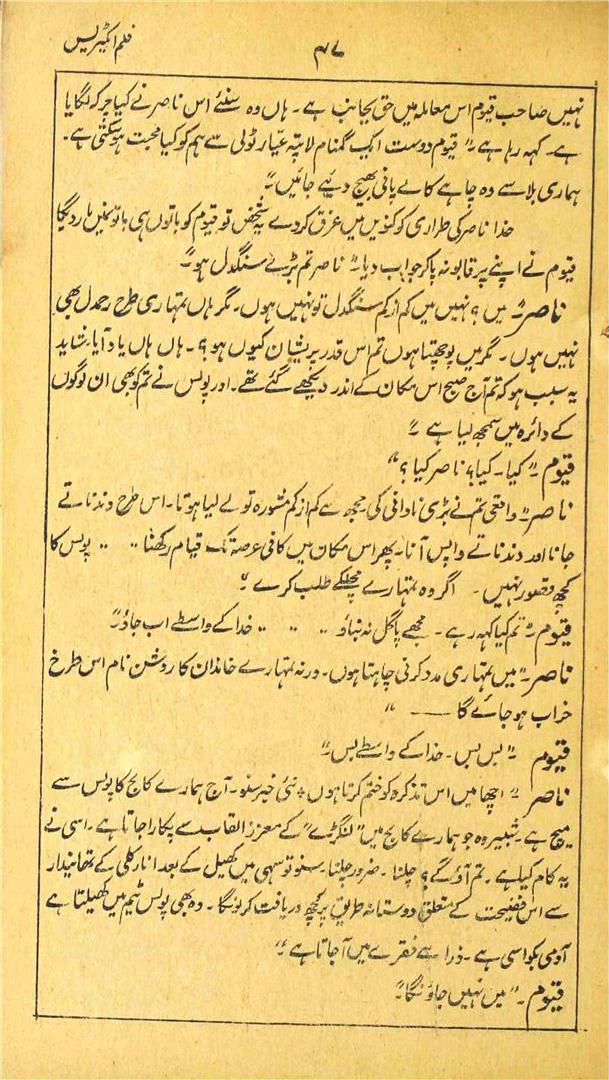 فلم ایکٹریس
۴۷
نہیں صاحب قیوم اس معاملہ میں حق بجانب ہے۔ ہاں وہ سنئے اس ناصر نے کیا چرکہ لگایا
ہے۔ کہہ رہا ہے۔" قیوم دوست ایک گمنام لاپتہ عیّار ٹولی سے ہم کو کیا محبت ہوسکتی ہے۔
ہماری بلا سے وہ چاہے کالے پانی بھیج دیئے جائیں۔"
خدا ناصر کی طراری کو کنویں میں غرق کردے یہ شخص تو قیوم کو باتوں ہی باتوں میں مار دیگا
قیوم نے اپنے پر قابو نہ پاکر جواب دیا۔" ناصر تم بڑے سنگدل ہو۔"
ناصر۔" میں؟ نہیں میں کم از کم سنگدل تو نہیں ہوں۔ گر ہاں تمہاری طرح رحمدل بھی
نہیں ہوں۔ مگر میں پوچھتا ہوں تم اس قدر پریشان کیوں ہو؟۔ ہاں ہاں یاد آیا۔ شاید
یہ سبب ہو کہ تم آج صبح اس مکان کے اندر دیکھے گئے تھے۔ اور پولس نے تم کو بھی ان لوگوں
کے دائرہ میں سمجھ لیا ہے۔"
قیوم۔" کیا۔ کیا؟ ناصر کیا؟"
ناصر۔" واقعی تم نے بڑی نادانی کی مجھ سے کم از کم مشورہ تو لے لیا ہوتا۔ اس طرح دندناتے
جانا اور دندناتے واپس آنا۔ پھر اس مکان میں کافی عرصہ تک قیام رکھنا ۰۰ ۰۰ پولس کا
کچھ قصور نہیں۔ اگر وہ تمہارے مچلکے طلب کرے۔"
قیوم۔" تم کیا کہہ رہے۔ مجھے پاگل نہ بناؤ ۰۰ ۰۰ ۰۰ خدا کے واسطے اب جاؤ۔"
ناصر۔" میں تمہاری مدد کرنی چاہتا ہوں۔ ورنہ تمہارے خاندان کا روشن نام اس طرح
خراب ہو جائے گا ——"
قیوم ۔" بس بس۔ خدا کے واسطے بس۔"
ناصر ۔" اچھا میں اس تذکرہ کو ختم کرتا ہوں، نئی خبر سنو۔ آج ہمارے کالج کا پولس سے
میچ ہے۔ شبیر وہ جو ہمارے کالج میں "لنگڑے" کے معزز القاب سے پکارا جاتا ہے۔ اسی نے
یہ کام کیا ہے۔ تم آؤ گے؟ چلنا۔ ضرور چلنا۔ سنو تو سہی میں کھیل کے بعد انارکلی کے تھانیدار
سے اس فضیحت کے متعلق دوستانہ طریق پر کچھ دریافت کرونگا۔ وہ بھی پولس ٹیم میں کھیلتا ہے
آدمی بکواسی ہے۔ ذرا سے فقرے میں آجاتا ہے۔"
قیوم۔" میں نہیں جاؤنگا۔"